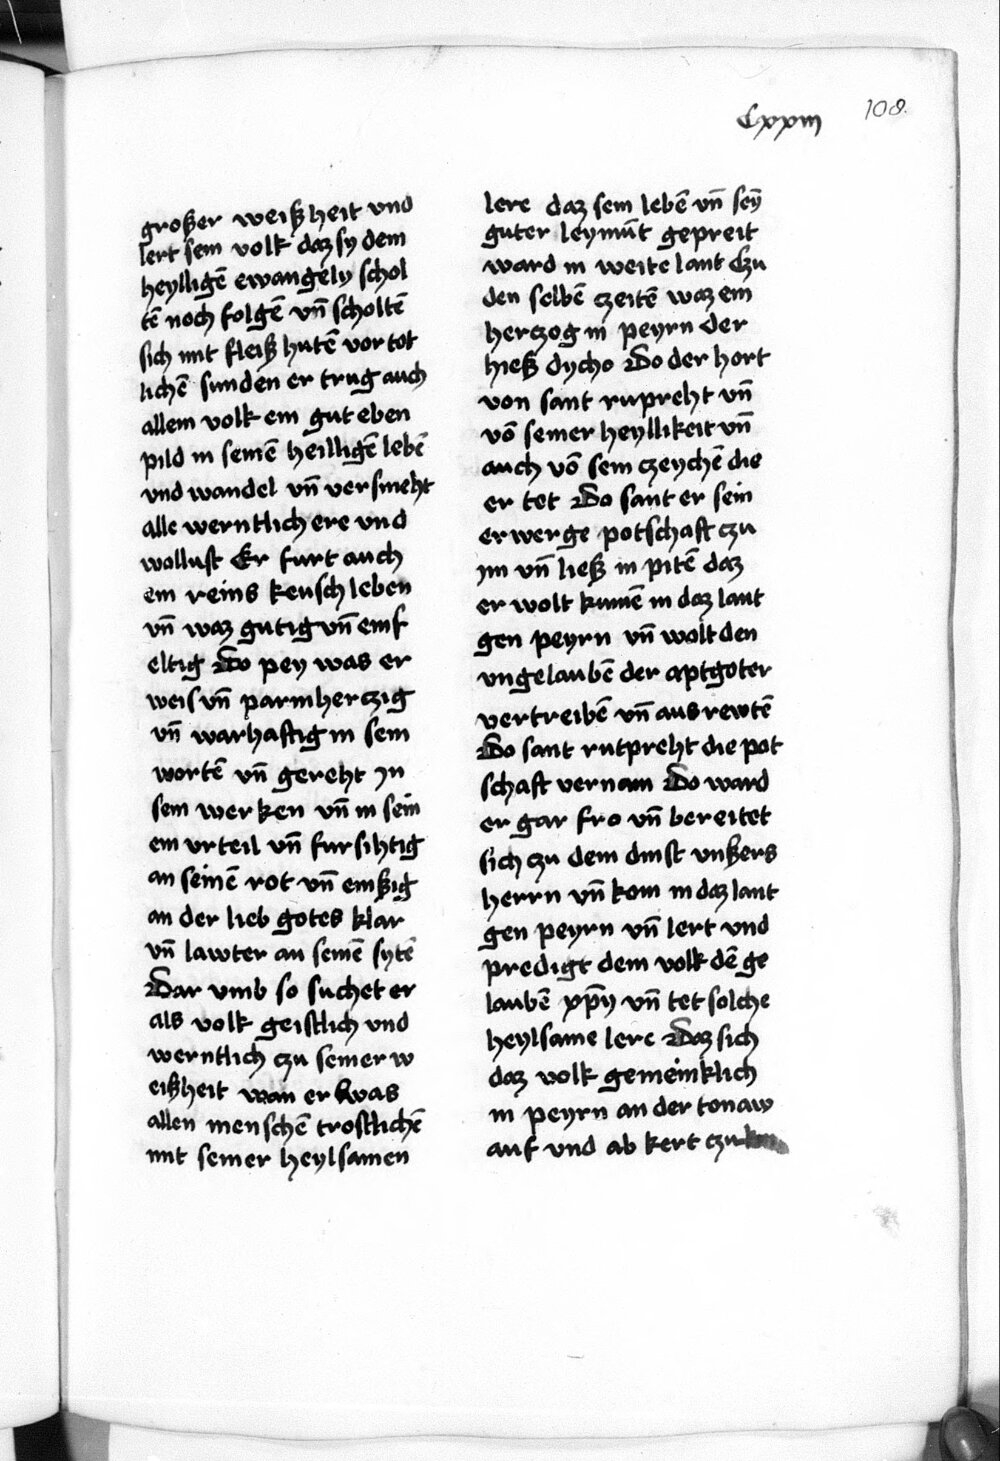 Cxxiii 108.
großer weißheit vnd
lert sein volk daz sy dem
heylligē ewangely schol
tē noch folgē vn̄ scholtē
sich mit fleiß hutē vor tot
lichē sunden er trug auch
allem volk ein gut eben
pild in seinē heilligē lebē
vnd wandel vn̄ versmeht
alle werntlich ere vnd
wollust Er furt auch
ein reins keusch leben
vn̄ waz gutig vn̄ einf
eltig Do pey was er
weis vn̄ parmherczig
vn̄ warhaftig in sein
wortē vn̄ gereht Jn
sein werken vn̄ in sein
ein vrteil vn̄ fursihtig
an seinē rot vn̄ emßig
an der lieb gotes klar
vn̄ lawter an seinē sytē
Dar vmb so suchet er
als volk geistlich vnd
werntlich czu seiner w
eißheit wan er was
allen menschē trostlichē
mit seiner heylsamen
lere daz sein lebē vn̄ seȳ
guter leymūt gepreit
ward in weite lant Czu
den selbē czeitē waz ein
herczog in peyrn der
hieß dycho Do der hort
von sant rupreht vn̄
vō seiner heyllikeit vn̄
auch vō sein czeychē die
er tet Do sant er sein
erwerge potschaft czu
im vn̄ ließ in pitē daz
er wolt kumē in daz lant
gen peyrn vn̄ wolt den
vngelaubē der aptgoter
vertreibē vn̄ aus rewtē
Do sant rutpreht die pot
schaft vernam Do ward
er gar fro vn̄ bereitet
sich czu dem dinst vnßers
herrn vn̄ kom in daz lant
gen peyrn vn̄ lert vnd
predigt dem volk dē ge
laubē xp̄i vn̄ tet solche
heylsame lere Daz sich
daz volk gemeinklich
in peyrn an der tonaw
auf vnd ab kert czu